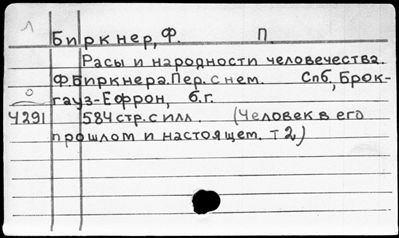 Биркнер, Ф. П.
Расы и народности человечества.
Ф.Биркнера. Пер. с нем. Спб, Брок-
гауз-Ефрон, б.г.
Ч291 584 стр. с илл. (Человек в его
прошлом и настоящем. т 2)